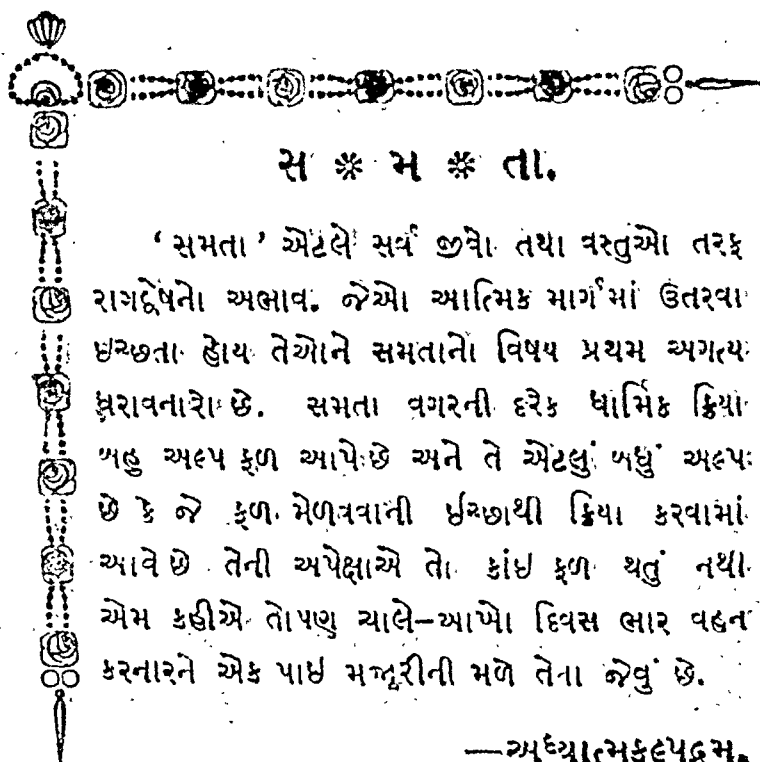 સ ❋ મ ❋ તા.
‘ સમતા ’ એટલે સર્વ જીવો તથા વસ્તુઓ તરફ
રાગદ્વેષનો અભાવ. જેઓ આત્મિક માર્ગમાં ઉતરવા
ઇચ્છતા હોય તેઓને સમતાનો વિષય પ્રથમ અગત્ય
ધરાવનારો છે. સમતા વગરની દરેક ધાર્મિક ક્રિયા
બહુ અલ્પ ફળ આપે છે અને તે એટલું બધું અલ્પ
છે કે જે ફળ મેળવવાની ઈચ્છાથી ક્રિયા કરવામાં
આવે છે તેની અપેક્ષાએ તો કાંઇ ફળ થતું નથી
એમ કહીએ તોપણ ચાલે–આખો દિવસ ભાર વહન
કરનારને એક પાઇ મજૂરીની મળે તેના જેવું છે.
—અધ્યાત્મકલ્પદ્રુમ.